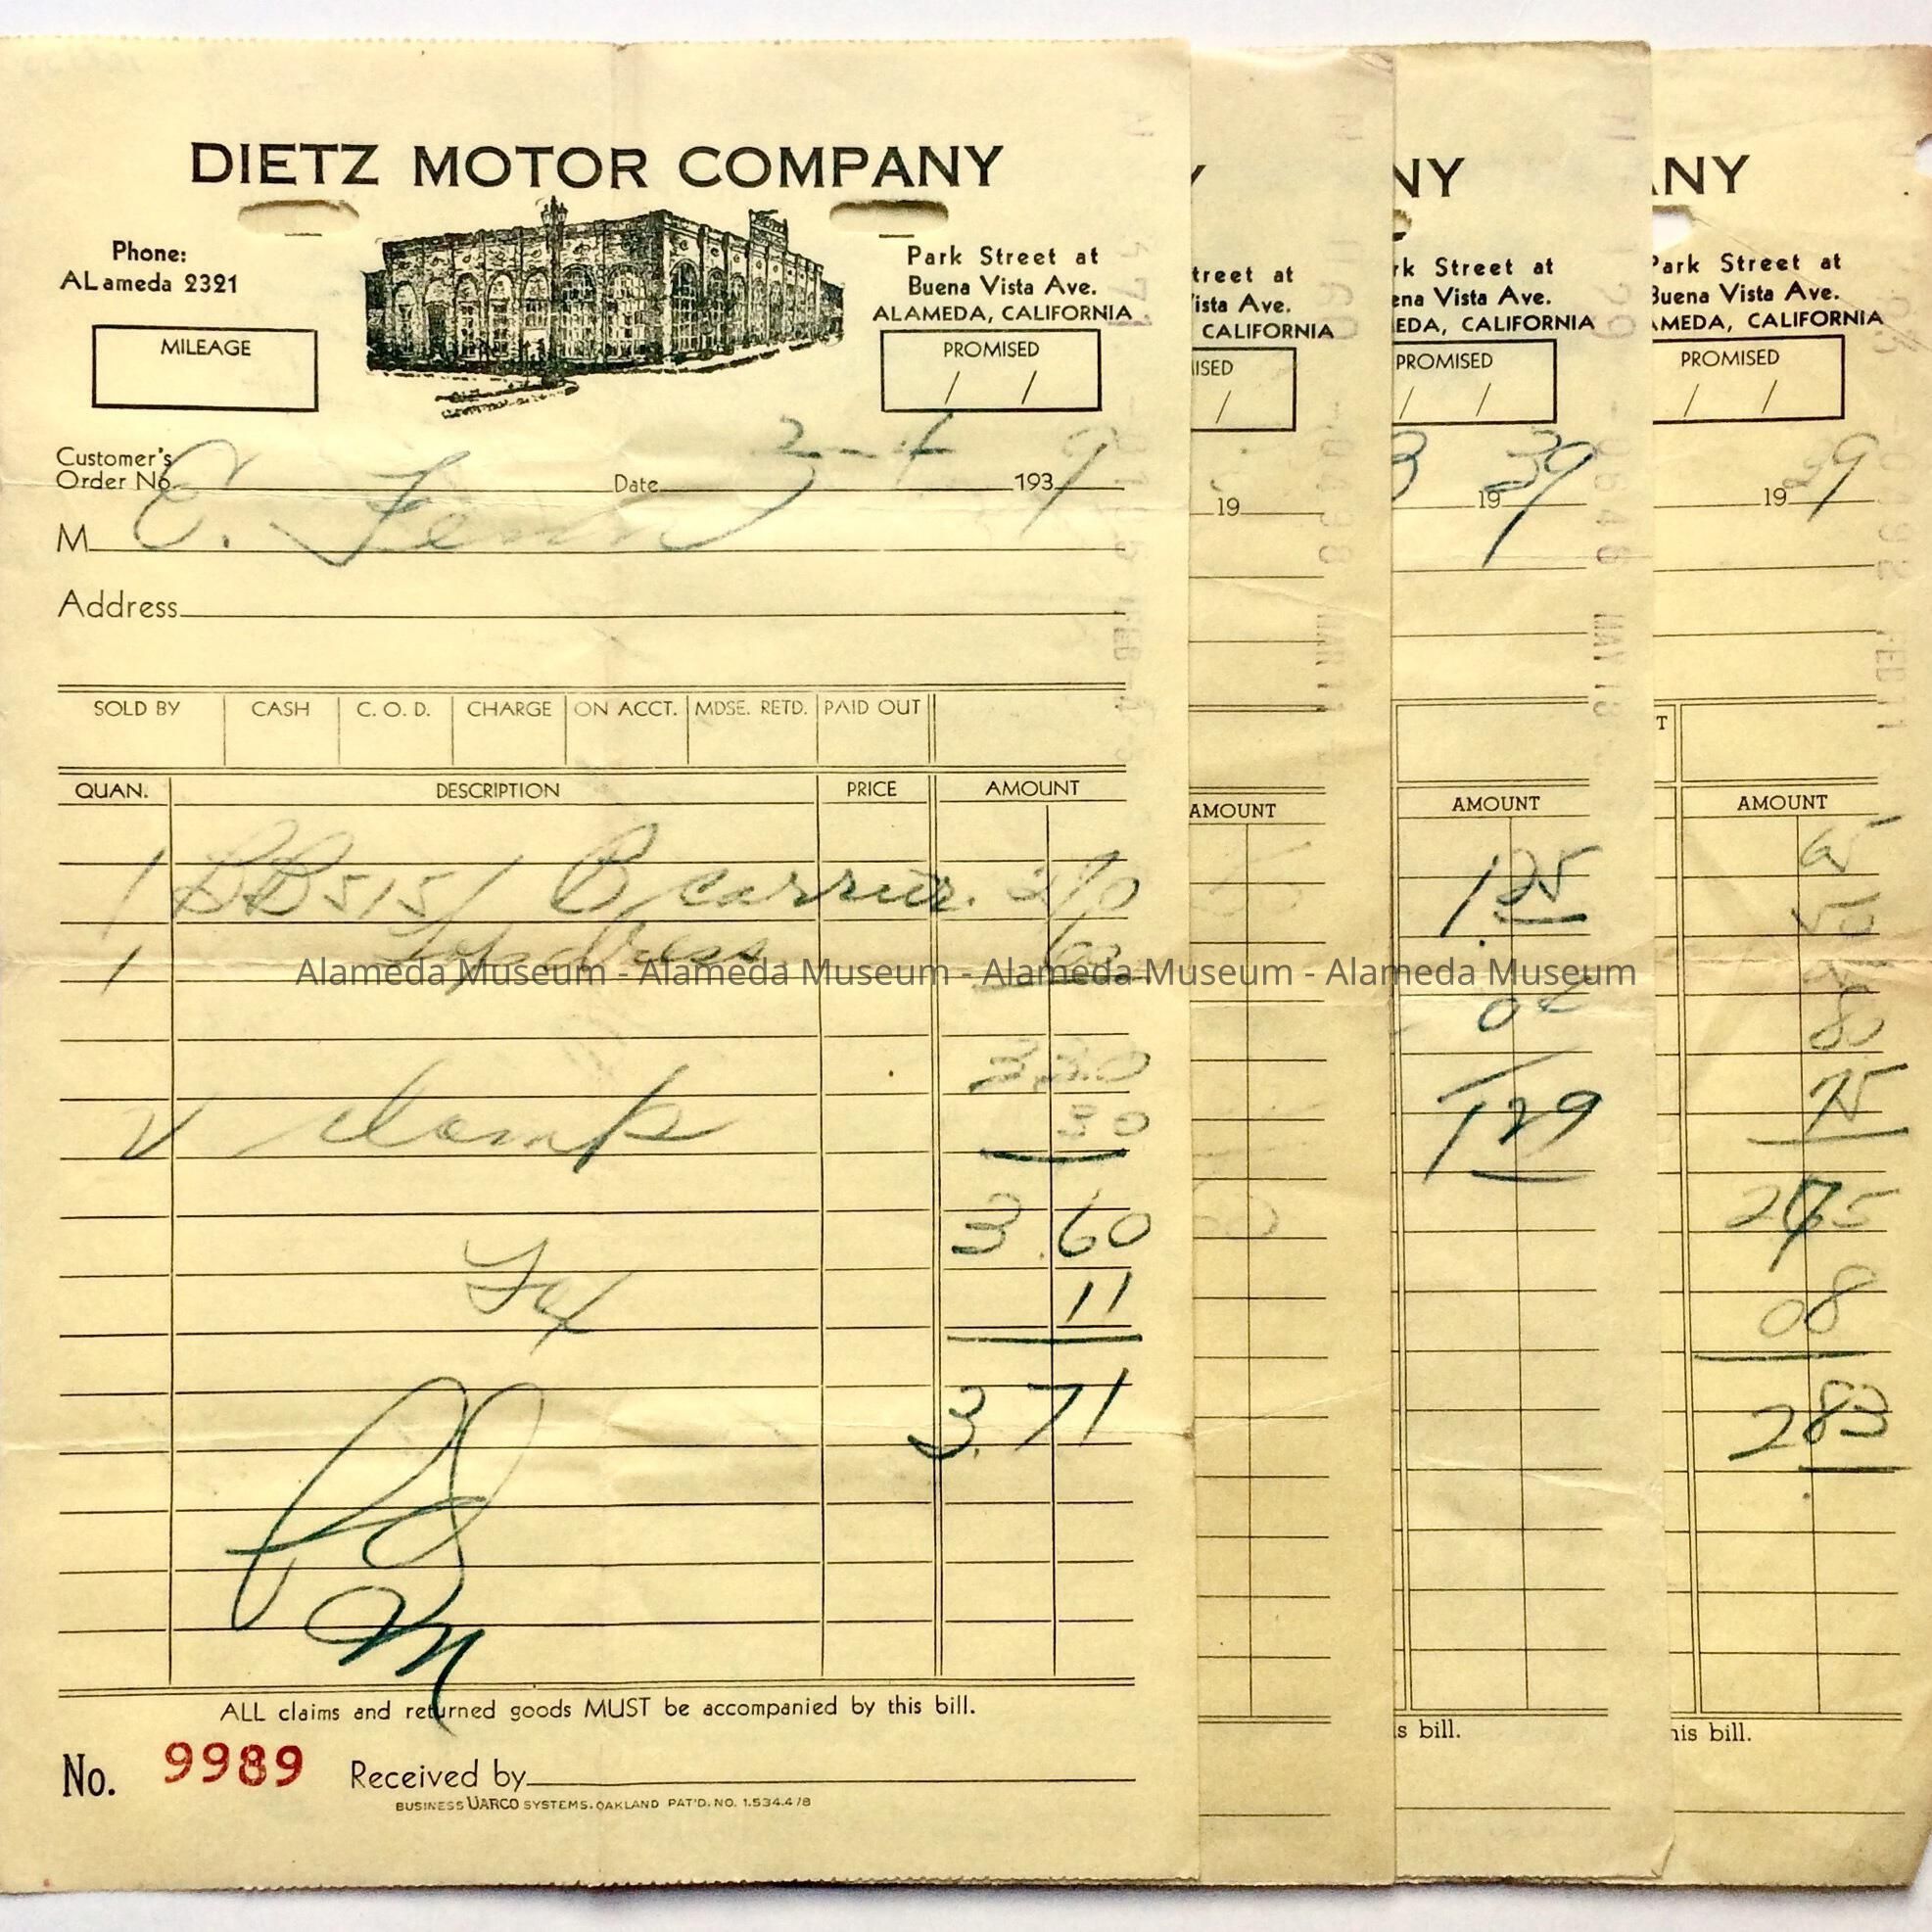 DIETZ MOTOR COMPANY
Phone:
ALameda 2321
Park Street at
Buena Vista Ave.
ALAMEDA, CALIFORNIA
MILEAGE
PROMISED
/ /
Customer's
Order No.
Date 193 9
M C. Fenn
Address
SOLD BY CASH C. O. D. CHARGE ON ACCT. MDSE. RETD. PAID OUT
QUAN. DESCRIPTION PRICE AMOUNT
1 BB5151 B carrier. 270
1 60
Alameda Museum - Alameda Museum - Alameda Museum - Alameda Museum
3.30
30
3.60
Tax 11
3.71
Pd
M
ALL claims and returned goods MUST be accompanied by this bill.
No. 9989 Received by
BUSINESS UARCO SYSTEMS. OAKLAND PAT'D. NO. 1.534.418
Y
treet at
ista Ave.
CALIFORNIA
ISED
/
19
AMOUNT
MAR 11
NY
rk Street at
ena Vista Ave.
EDA, CALIFORNIA
PROMISED
/ /
3 19 39
MAY 18
AMOUNT
1 25
04
1 29
is bill.
NY
Park Street at
Buena Vista Ave.
AMEDA, CALIFORNIA
PROMISED
/ /
19 39
FEB 11
T
AMOUNT
65
50
80
75
08
2 83
his bill.